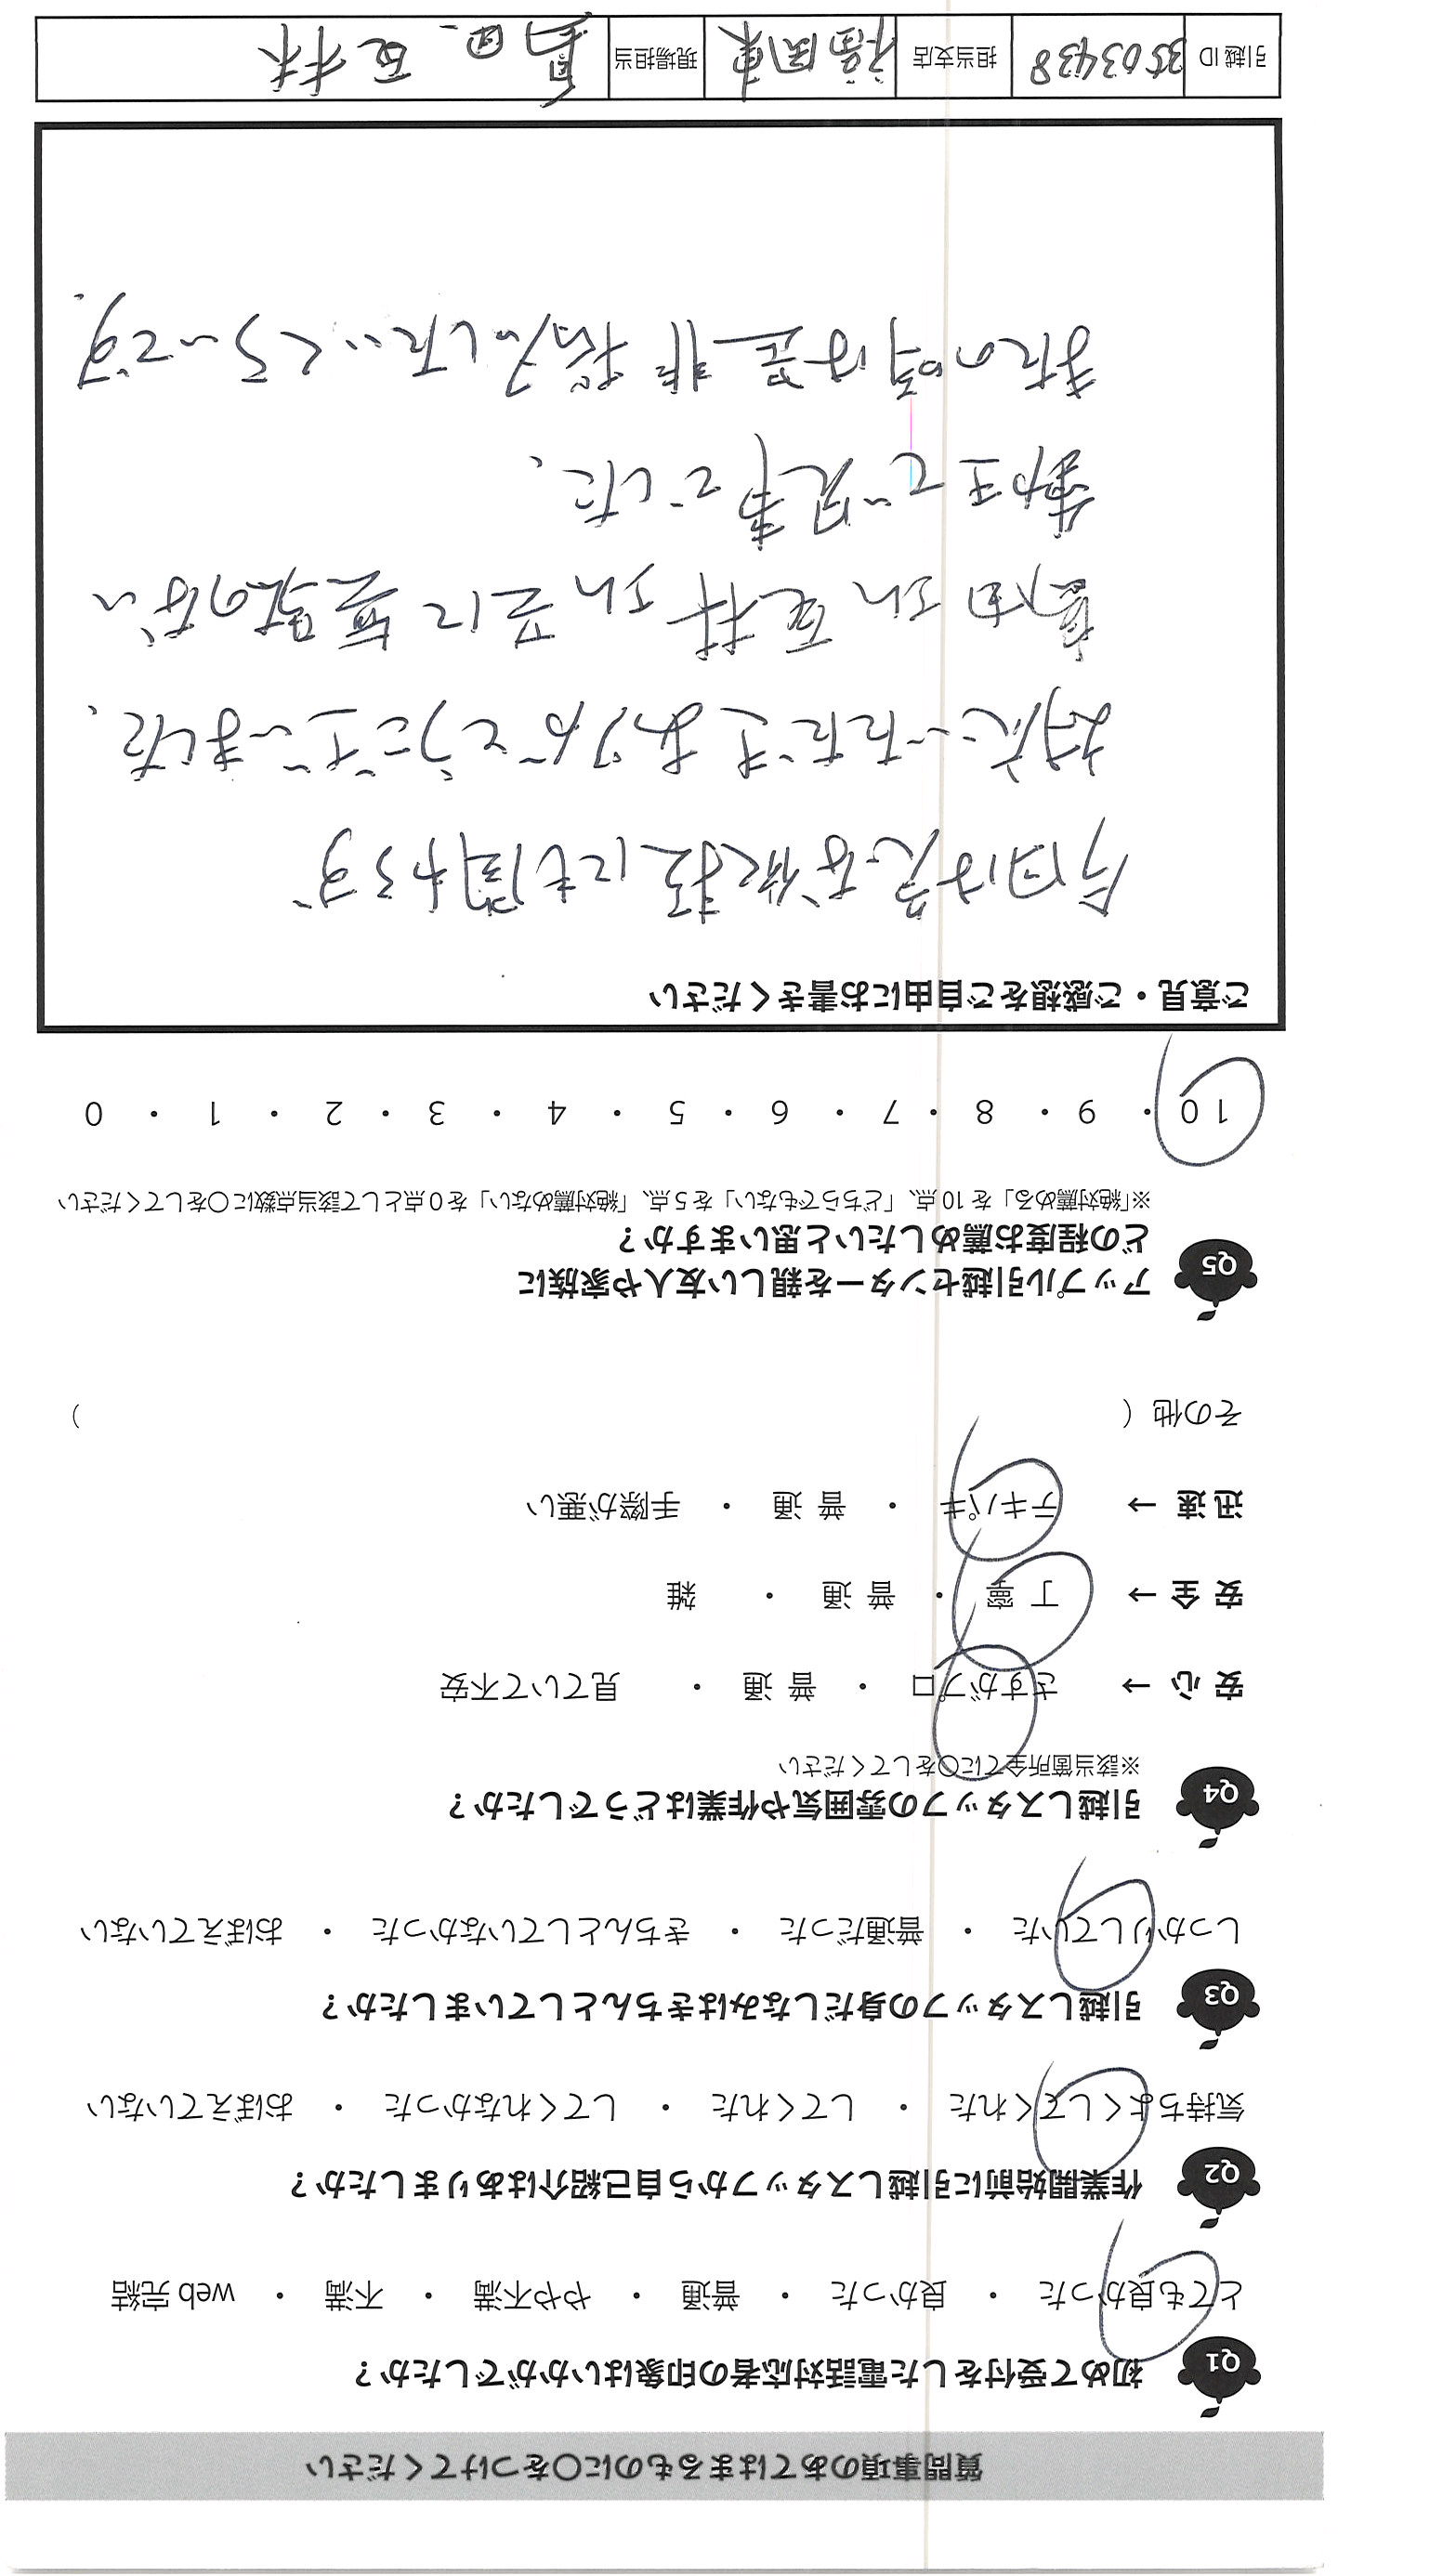 質問事項のあてはまるものに〇をつけてください
Q1 初めて受付をした電話対応者の印象はいかがでしたか？
とても良かった ・ 良かった ・ 普通 ・ やや不満 ・ 不満 ・ web 完結
Q2 作業開始前に引越しスタッフから自己紹介はありましたか？
気持ちよくしてくれた ・ してくれた ・ してくれなかった ・ おぼえていない
Q3 引越しスタッフの身だしなみはきちんとしていましたか？
しっかりしていた ・ 普通だった ・ きちんとしていなかった ・ おぼえていない
Q4 引越しスタッフの雰囲気や作業はどうでしたか？
※該当箇所全てに〇をしてください
安 心 → さすがプロ ・ 普 通 ・ 見ていて不安
安 全 → 丁 寧 ・ 普 通 ・ 雑
迅 速 → テキパキ ・ 普 通 ・ 手際が悪い
その他（ ）
Q5 アップル引越センターを親しい友人や家族に
どの程度お薦めしたいと思いますか？
※「絶対薦める」を 10 点、「どちらでもない」を 5 点、「絶対薦めない」を 0 点として該当点数に〇をしてください
10 ・ 9 ・ 8 ・ 7 ・ 6 ・ 5 ・ 4 ・ 3 ・ 2 ・ 1 ・ 0
ご意見・ご感想をご自由にお書きください
今回は急な依頼にも関わらず
対応いただきありがとうございました。
島田さん 西林さん 共に無駄のない
動きで見事でした。
またの時は是非 指名したいくらいです。
引越 ID 3503438 担当支店 福岡東 現場担当 島田、西林